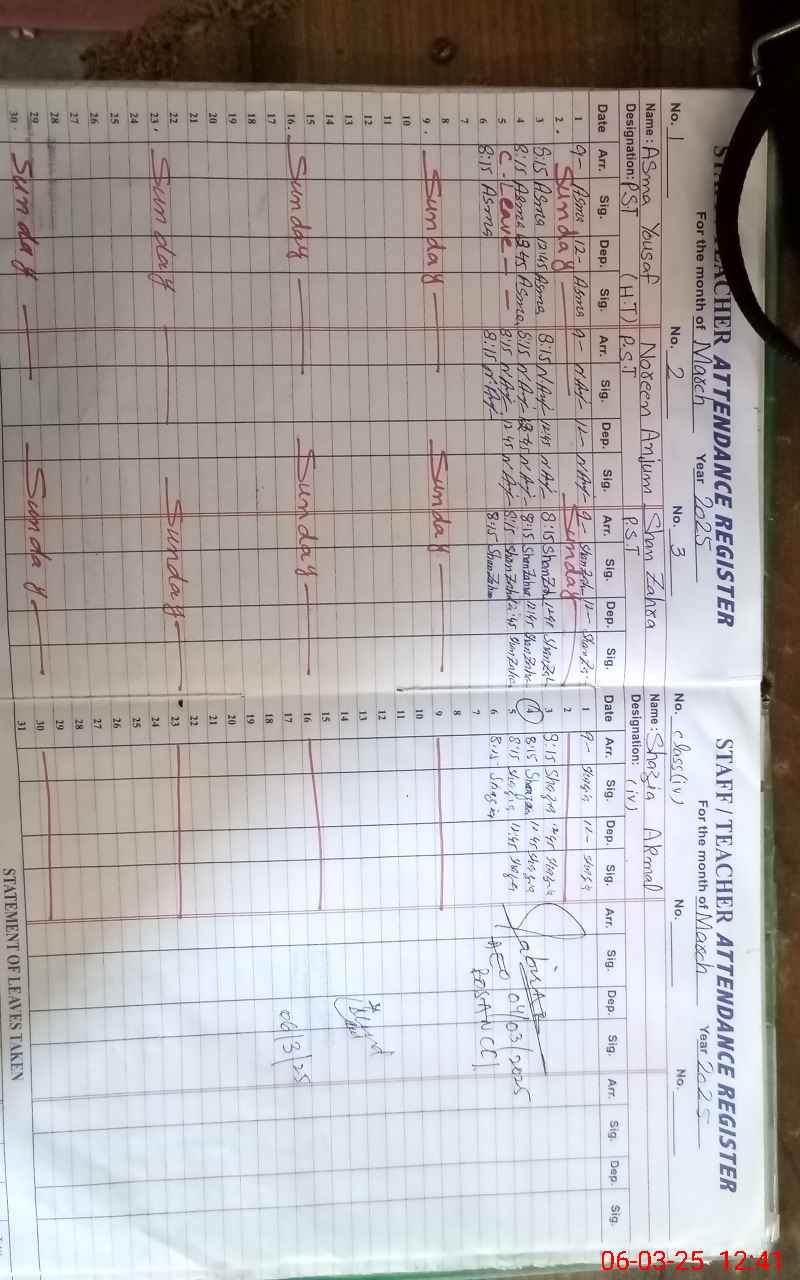 STAFF / TEACHER ATTENDANCE REGISTER
For the month of March Year 2025
No. 1 No. 2 No. 3
Name: Asma Yousaf Noreen Anjum Shan Zahra
Designation: PST (H.T) P.S.T P.S.T
Date Arr. Sig. Dep. Sig. Arr. Sig. Dep. Sig. Arr. Sig. Dep. Sig.
1 9- Asma 12- Asma 9- N.Anj 12- N.Anj 9- 12-
2. Sunday Sunday
3 8:15 Asma 12:45 Asma 8:15 N.Anj 12:45 N.Anj 8:15 ShanZah 12:45
4 8:15 Asma 12:45 Asma 8:15 N.Anj 12:45 N.Anj 8:15 ShanZahra 12:45 ShanZahra
5 C-Leave 8:15 N.Anj 12:45 N.Anj 8:15 ShanZahra 12:45 ShanZahra
6 8:15 Asma 8:15 N.Anj 8:15 ShanZahra
7
8
9. Sunday Sunday
10
11
12
13
14
15
16. Sunday Sunday
17
18
19
20
21
22
23. Sunday Sunday
24
25
26
27
28
29
30. Sunday Sunday
STAFF / TEACHER ATTENDANCE REGISTER
For the month of March Year 2025
No. class (iv) No. No.
Name: Shazia Akmal
Designation: (iv)
Date Arr. Sig. Dep. Sig. Arr. Sig. Dep. Sig. Arr. Sig. Dep. Sig.
1 9- Shazia 12- Shazia
2
3 8:15 Shazia 12:45 Shazia
4 8:15 Shazia 12:45 Shazia
5 8:15 Shazia 12:45 Shazia
6 8:15 Shazia
AEO 04/03/2025
7
8
9
10
11
12
13
14
15
16
06/3/25
17
18
19
20
21
22
23
24
25
26
27
28
29
30
31
STATEMENT OF LEAVES TAKEN
06-03-25 12:41